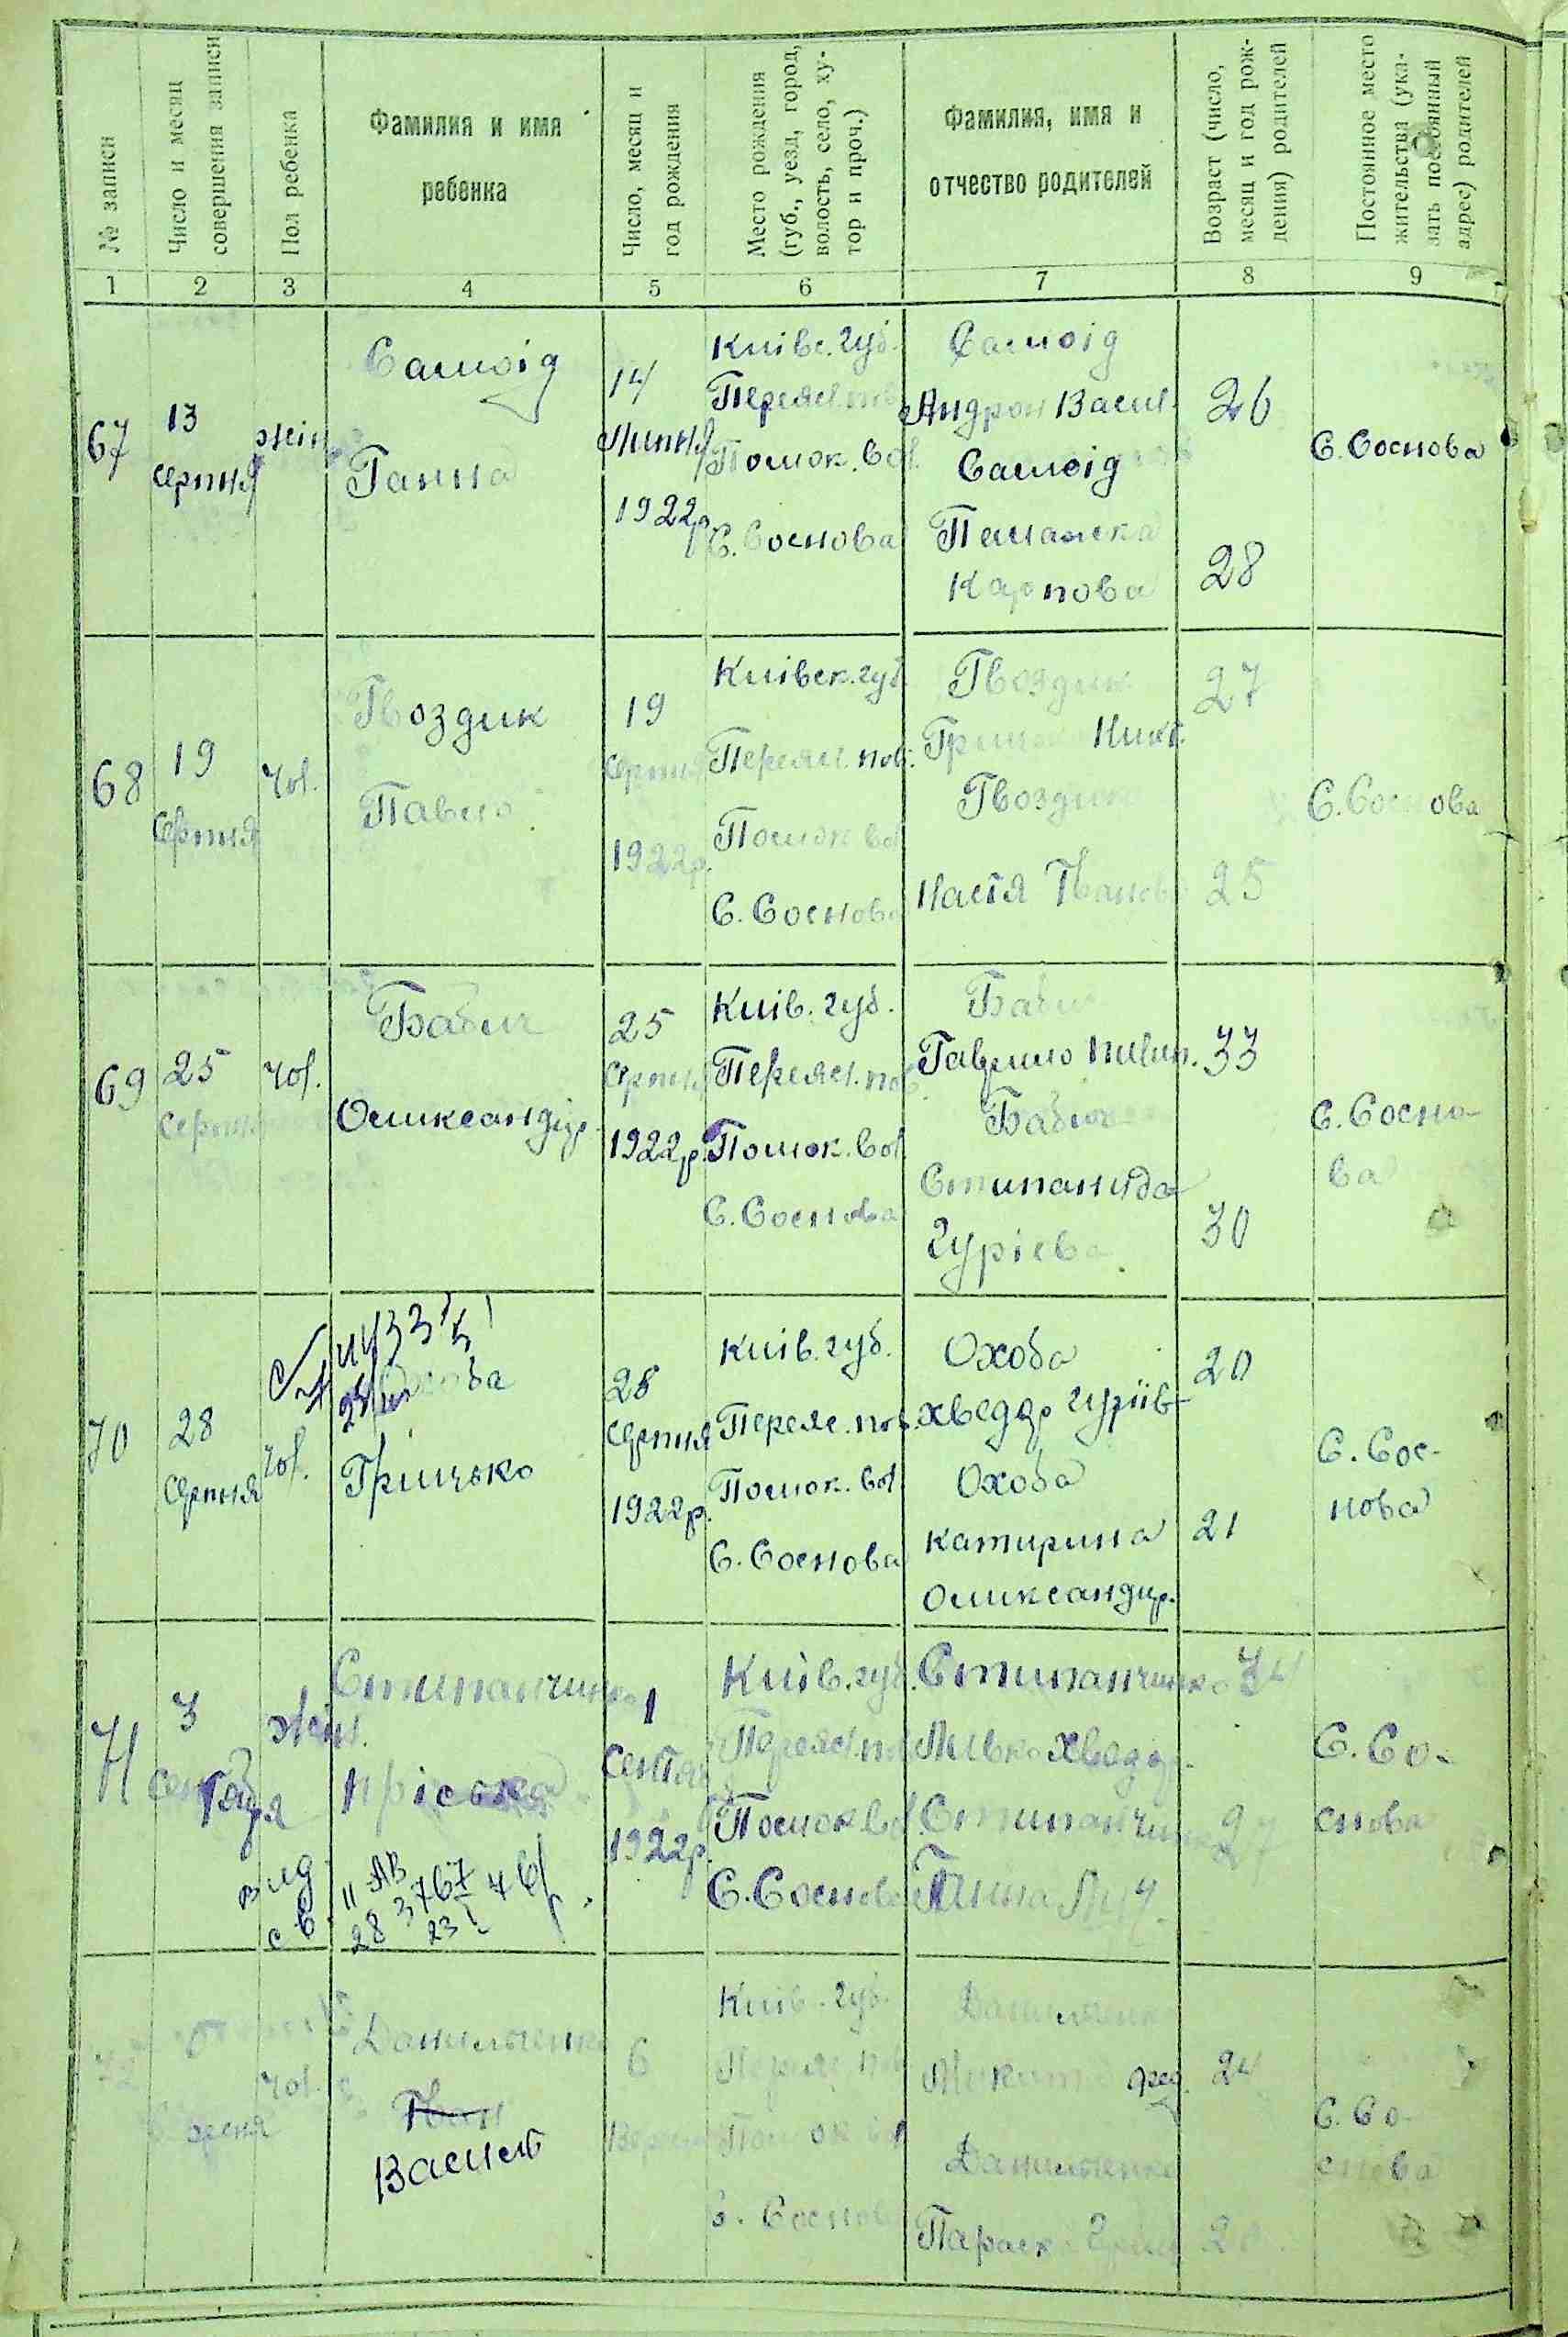 № записи
Число и месяц
совершения записи
Пол ребенка
Фамилия и имя
ребенка
Число, месяц и
год рождения
Место рождения
(губ., уезд, город,
волость, село, ху-
тор и проч.)
Фамилия, имя и
отчество родителей
Возраст (число,
месяц и год рож-
дения) родителей
Постоянное место
жительства (ука-
зать постоянный
адрес) родителей
1 2 3 4 5 6 7 8 9
67
13
серпня
жін
Самоід
Ганна
14
Липня
1922р.
Київс. губ.
Переясл. пов
Помок. вол.
С. Соснова
Самоід
Андрон Васил.
Самоід
Пелажка
Карпова
26
28
С. Соснова
68
19
Серпня
чол.
Гвоздик
Павло
19
Серпня
1922р.
Київск. губ.
Переясл. пов.
Помок вол
С. Соснова
Гвоздик
Грицько Никт.
Гвоздик
Настя Іванов
27
25
С. Соснова
69
25
Серпня
чол.
Бабич
Олижсандр
25
Серпня
1922р.
Київ. губ.
Переясл. пов.
Помок. вол
С. Соснова
Бабич
Гаврило Пилип.
Бабич
Стипанида
Гуріева
33
30
С. Сосно-
ва
70
28
Серпня
чол.
Охоба
Грицько
28
Серпня
1922р.
Київ. губ.
Переяс. пов.
Помок. вол
С. Соснова
Охоба
хведор гуріїв
Охоба
катирина
Олиександр.
20
21
С. Сос-
нова
71
3
жін.
Стипанчинко
Пріська
1
1922р.
Київ. губ.
Переясл. пов
Помок вол
С. Соснова
Стипанчинко
Левко хведор.
Стипанчинко
34
27
С. Со-
снова
72
6
чол.
Данильченко
Іван
Василь
6
Вересня
Київ. губ.
Переяс. пов
Помок вол
С. Соснова
Данильченко
Микита фед.
Данильченко
Параск
24
С. Со-
снова